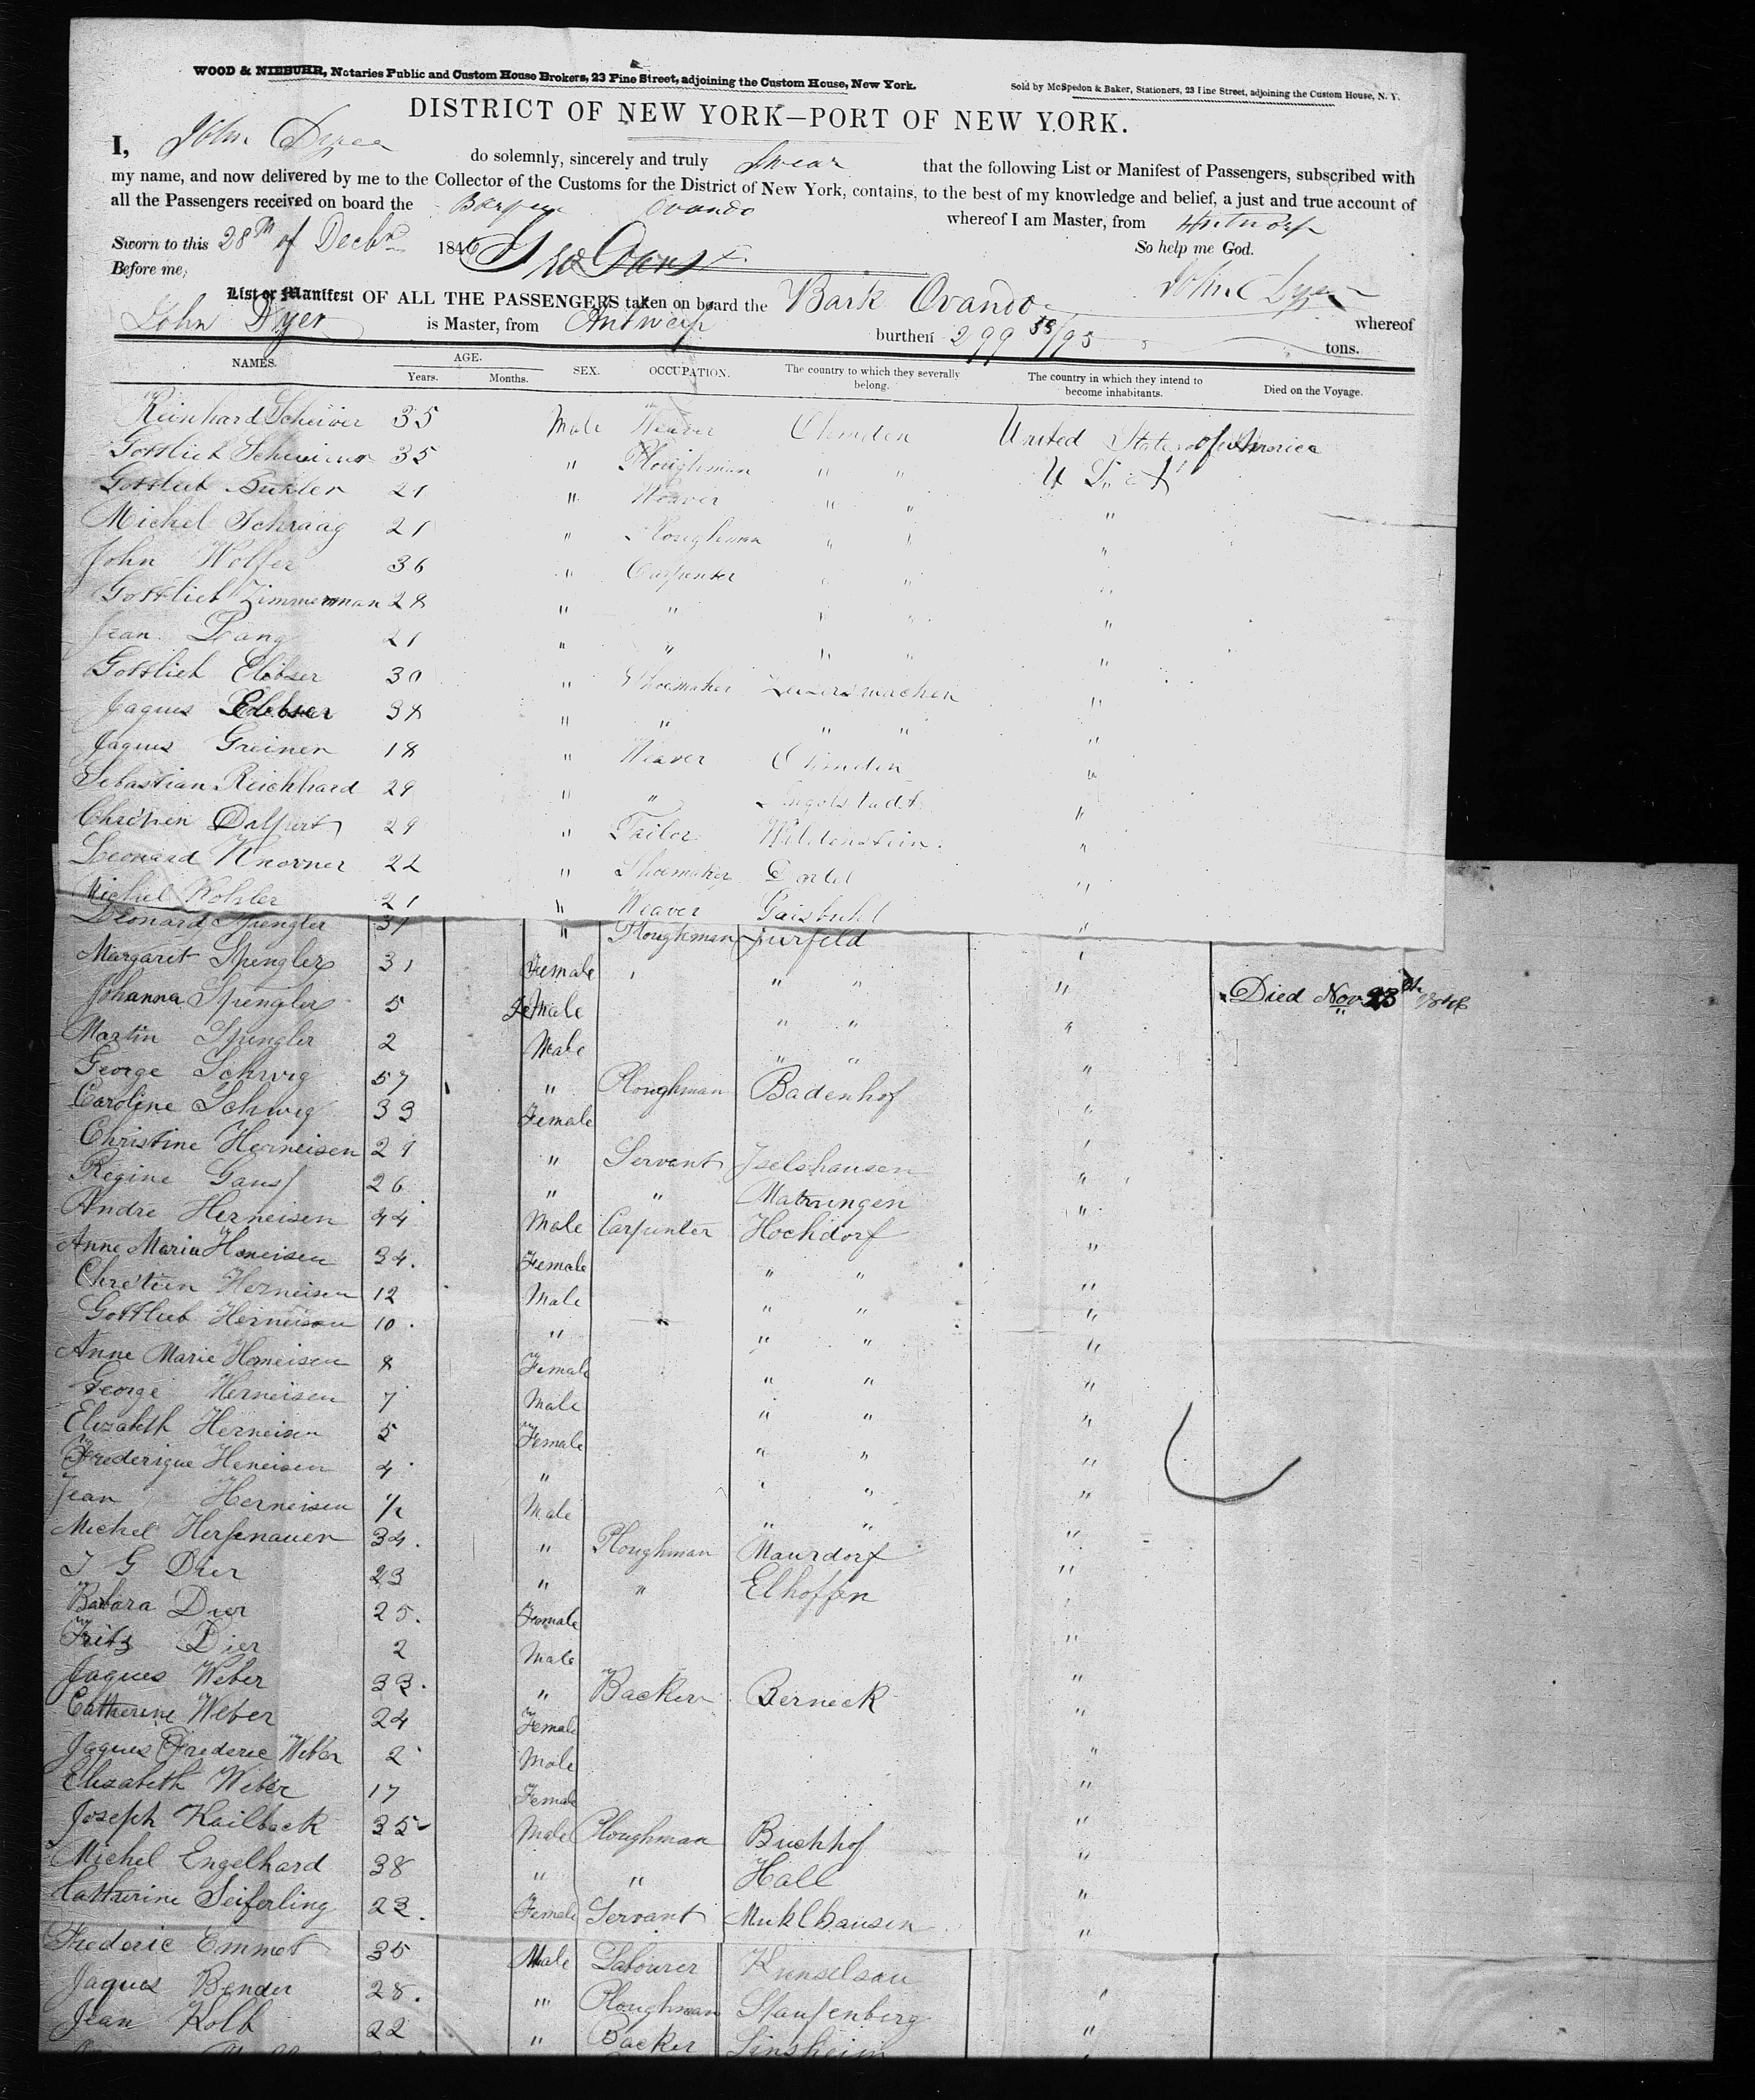 WOOD & NIEBUHR, Notaries Public and Custom House Brokers, 23 Pine Street, adjoining the Custom House, New York.
Sold by McSpedon & Baker, Stationers, 23 Pine Street, adjoining the Custom House, N. Y.
DISTRICT OF NEW YORK—PORT OF NEW YORK.
I, John Dyer do solemnly, sincerely and truly Swear that the following List or Manifest of Passengers, subscribed with
my name, and now delivered by me to the Collector of the Customs for the District of New York, contains, to the best of my knowledge and belief, a just and true account of
all the Passengers received on board the Barque Ovando whereof I am Master, from Antwerp
Sworn to this 28th of Decbr 1846 So help me God.
Before me, John Dyer
List or Manifest OF ALL THE PASSENGERS taken on board the Bark Ovando whereof
John Dyer is Master, from Antwerp burthen 299 58/95 tons.
NAMES. AGE. Years. Months. SEX. OCCUPATION. The country to which they severally belong. The country in which they intend to become inhabitants. Died on the Voyage.
Reinhard 35 Male Weaver United States of America
Gottlieb 35 " Ploughman " " U S of A
Gottlieb 21 " Weaver " " "
Michel Schraag 21 " Ploughman " " "
John Wolfer 36 " Carpenter " " "
Gottlieb Zimmerman 28 " " " " "
Jean Lang 21 " " " " "
Gottlieb Elibser 30 " Shoemaker "
Jaques 38 " " " " "
Jaques Greiner 18 " Weaver "
Sebastian Reichhard 29 " " Ingolstadt "
Chretien 29 " Tailor Wildenstein "
Leonard Knorner 22 " Shoemaker "
Michel Kohler 21 " Weaver Gaisbuhl "
Leonard Spengler 31 " Ploughman Furfeld "
Margaret Spengler 31 Female " " "
Johanna Spengler 5 Female " " " Died Nov 23th 1846
Martin Spengler 2 Male " " "
George Schwig 57 " Ploughman Badenhof "
Caroline Schwig 33 Female "
Christine Herneisen 29 " Servant Iselshausen "
Regine Gauss 26 " " "
Andre Herneisen 44 Male Carpenter Hochdorf "
Anne Maria Herneisen 34. Female " " "
Chretien Herneisen 12 Male " " "
Gottlieb Herneisen 10. " " " "
Anne Marie Herneisen 8 Female " " "
George Herneisen 7 Male " " "
Elizabeth Herneisen 5 Female " " "
Frederique Herneisen 4 " " " "
Jean Herneisen ½ Male " " "
Michel Herfenauer 34. " Ploughman Maurdorf "
J G Dier 23 " " Elhoffen "
Barbara Dier 25. Female "
Fritz Dier 2 Male "
Jaques Weber 33. " Backer Berneck "
Catherine Weber 24 Female "
Jaques Frederic Weber 2 Male "
Elizabeth Weber 17 Female "
Joseph Kailback 35 Male Ploughman Buchhof "
Michel Engelhard 38 " " Hall "
Catherine Seiferling 23. Female Servant Muhlhausen "
Frederic Emmet 35 Male Labourer Kunselsau
Jaques Bender 28. " Ploughman Staufenberg "
Jean Kolb 22 " Backer Sinsheim "